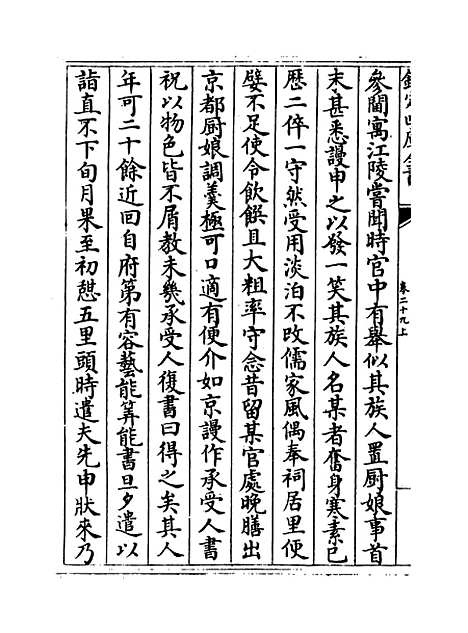 欽定四庫全書
卷二十九上
參閫寓江陵嘗聞時官中有舉似其族人置厨娘事首
末甚悉謾申之以發一笑其族人名某者奮身寒素已
歴二倅一守然受用淡泊不改儒家風偶奉祠居里便
嬖不足使令飲饌且大粗率守念昔留某官處晚膳出
京都厨娘調羮極可口適有便介如京謾作承受人書
祝以物色皆不屑教未幾承受人復書曰得之矣其人
年可二十餘近回自府第有容藝能筭能書旦夕遣以
詣直不下旬月果至初憇五里頭時遣夫先申狀來乃